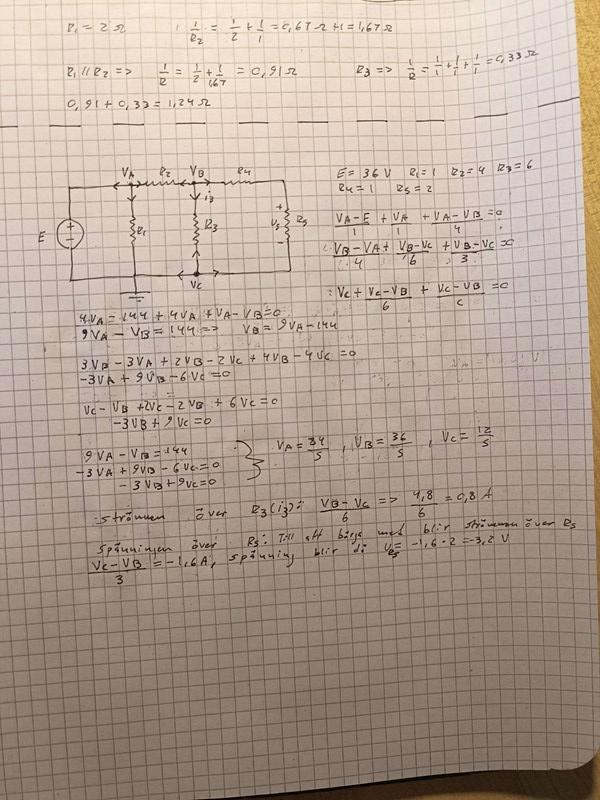 R₁ = 2 Ω
1/R₂ = 1/2 + 1/1 = 0,67 Ω +1 = 1,67 Ω
R₁ // R₂ => 1/R = 1/2 + 1/1,67 = 0,91 Ω
R₃ => 1/R = 1/1 + 1/1 + 1/1 = 0,33 Ω
0,91 + 0,33 = 1,24 Ω
VA R₂ VB R₄
i₃
E + - R₁ R₃ U₅ + - R₅
VC
E = 36 V R₁ = 1 R₂ = 4 R₃ = 6
R₄ = 1 R₅ = 2
(VA - E)/1 + VA/1 + (VA - VB)/4 = 0
(VB - VA)/4 + (VB - VC)/6 + (VB - VC)/3 = 0
VC + (VC - VB)/6 + (VC - VB)/ = 0
4VA = 144 + 4VA + VA - VB = 0
9VA - VB = 144 => VB = 9VA - 144
3VB - 3VA + 2VB - 2VC + 4VB - 4VC = 0
-3VA + 9VB - 6VC = 0
VC - VB + 2VC - 2VB + 6VC = 0
-3VB + 9VC = 0
9VA - VB = 144
-3VA + 9VB - 6VC = 0
-3VB + 9VC = 0
VA = 84/5 , VB = 36/5 , VC = 12/5
strömmen över R₃(i₃): (VB - VC)/6 => 4,8/6 = 0,8 A
Spänningen över R₅: Till att börja med blir strömmen över R₅
(VC - VB)/3 = -1,6 A, spänning blir då U₅ = -1,6 · 2 = -3,2 V